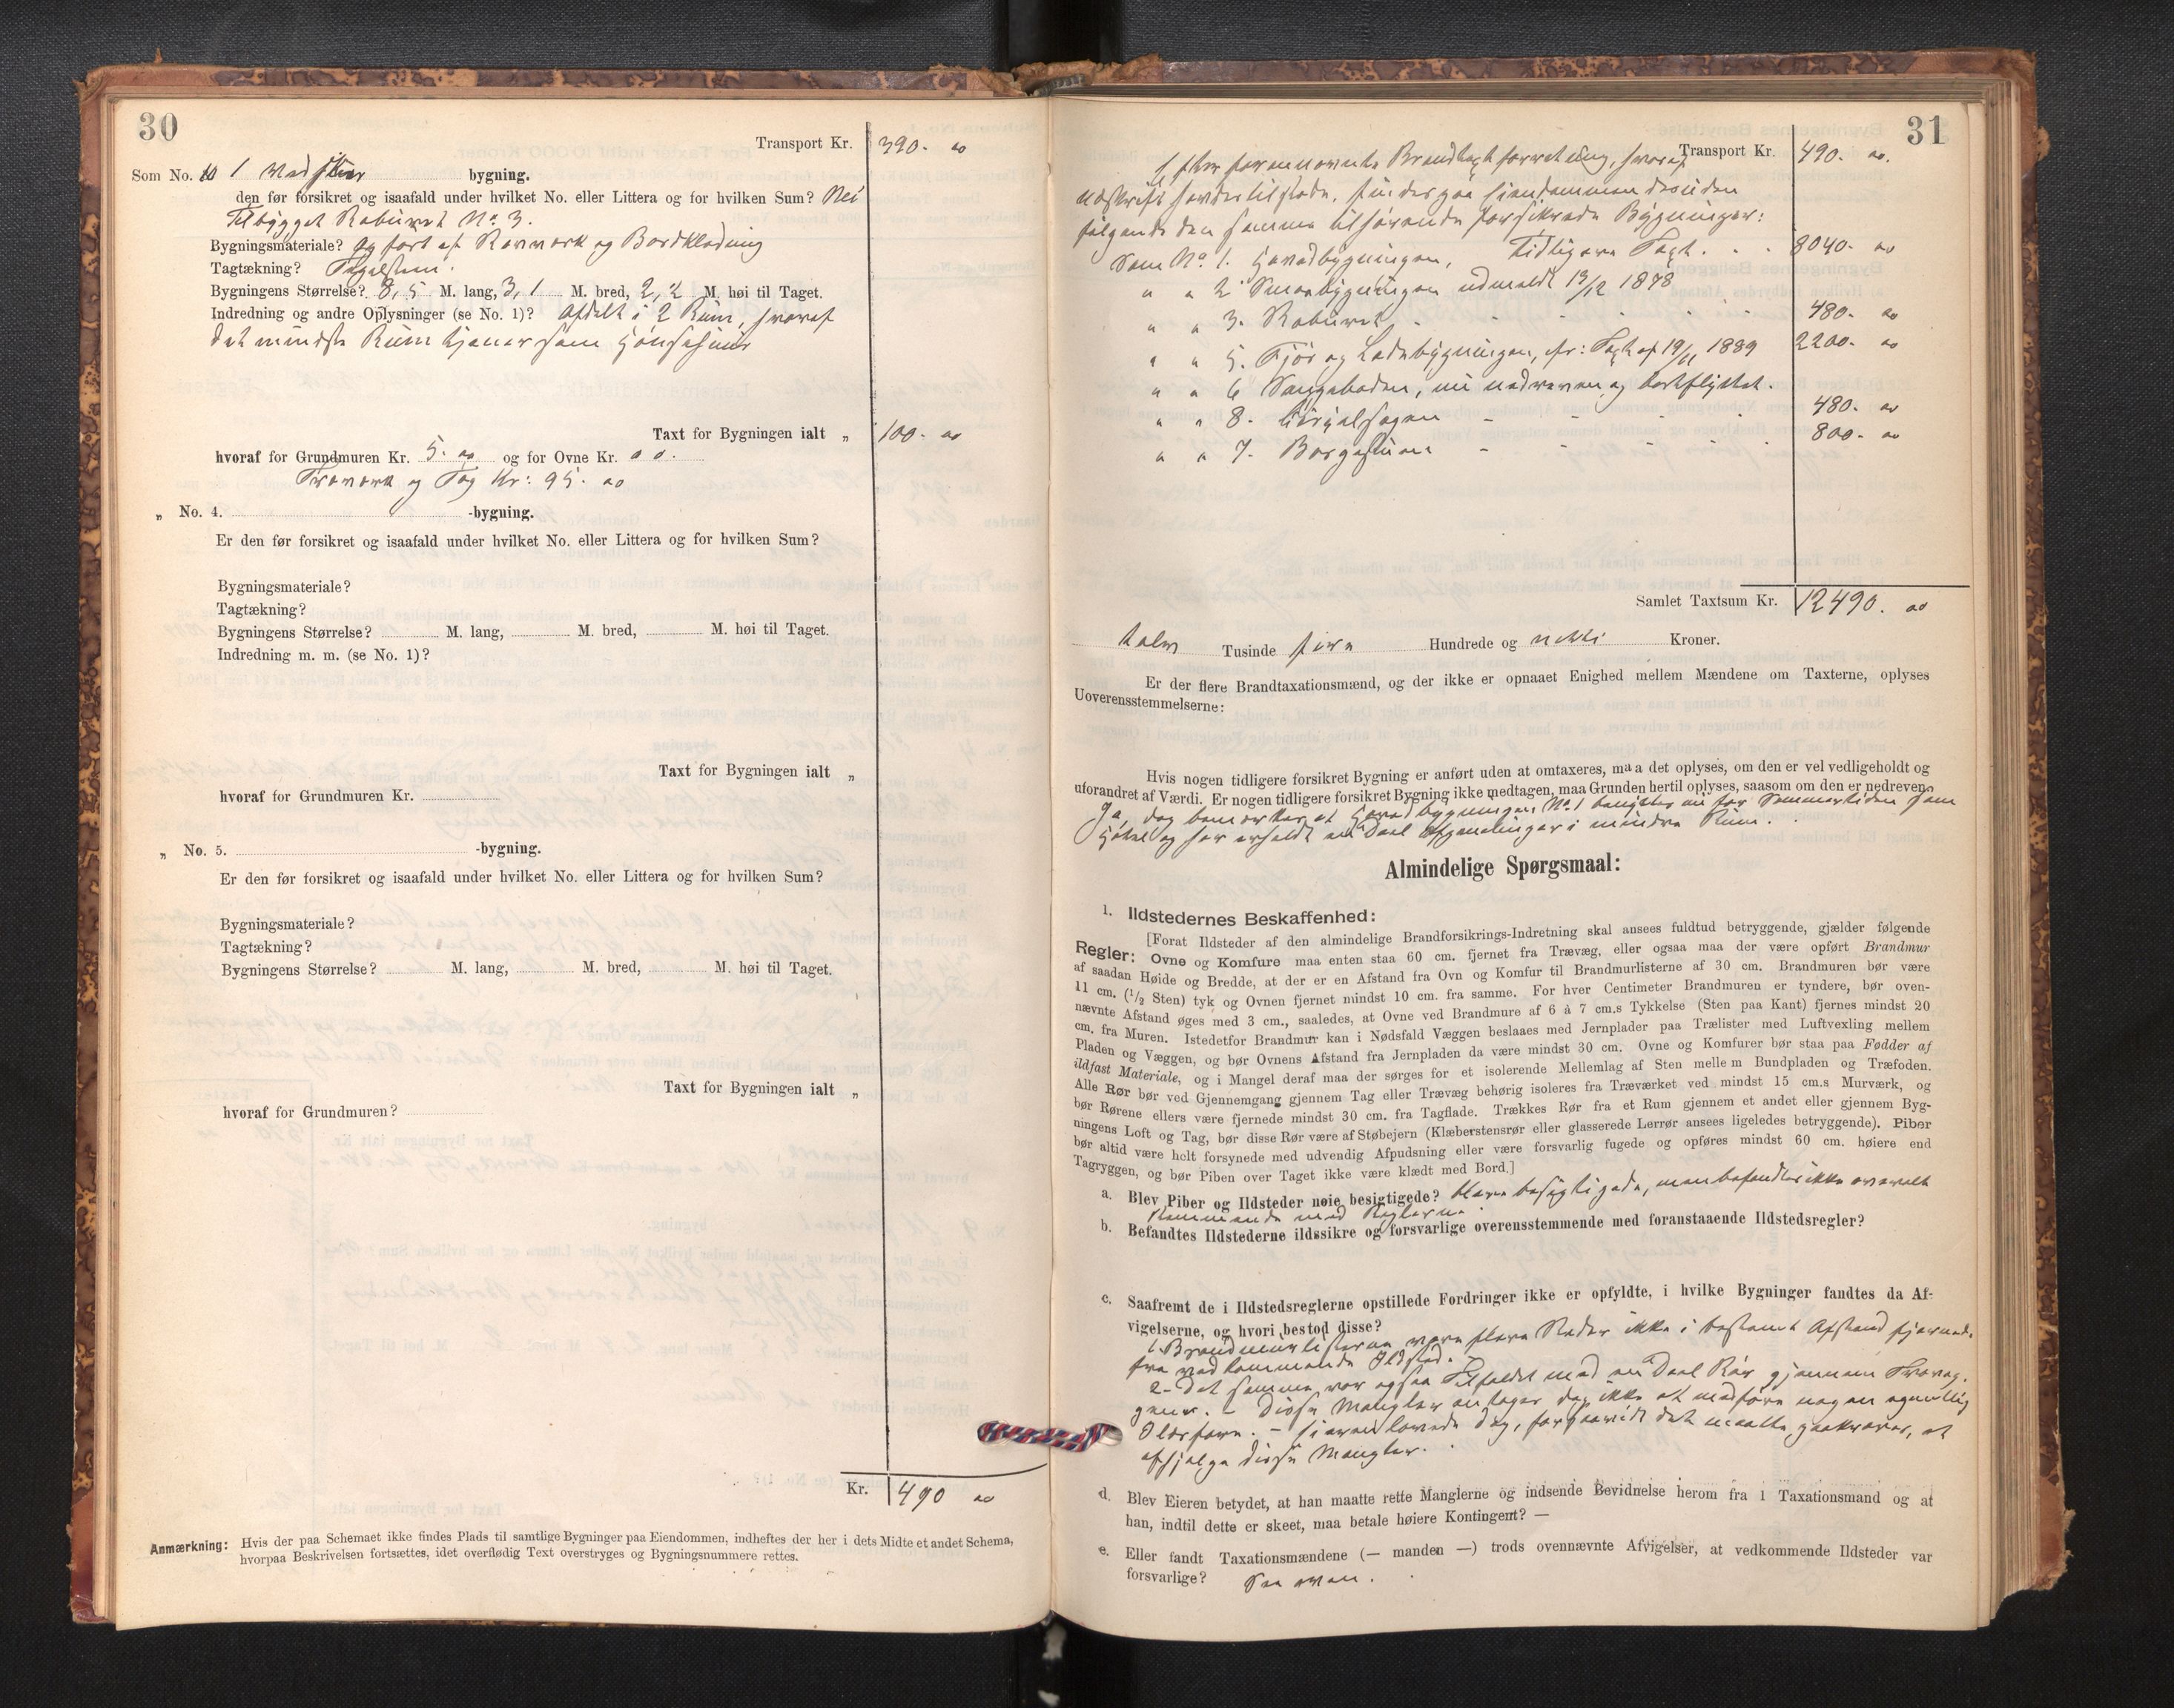 30
Transport Kr. 390. 00
Som No. 10 1 Vedskur bygning.
den før forsikret og isaafald under hvilket No. eller Littera og for hvilken Sum? Nei
Tilbygget Staburet No. 3.
Bygningsmateriale? Opført af Stavværk og Bordklædning
Tagtækning? Tegelsten.
Bygningens Størrelse? 8,5 M. lang, 3,1 M. bred, 2,2 M. høi til Taget.
Indredning og andre Oplysninger (se No. 1)? Afdelt i 2 Rum, hvoraf
det mindste Rum tjener som Hønsehuus
Taxt for Bygningen ialt „ 100. 00
hvoraf for Grundmuren Kr. 5. 00 og for Ovne Kr. 0 0.
Træværk og Tag Kr: 95. 00
„ No. 4. -bygning.
Er den før forsikret og isaafald under hvilket No. eller Littera og for hvilken Sum?
Bygningsmateriale?
Tagtækning?
Bygningens Størrelse? M. lang, M. bred, M. høi til Taget.
Indredning m. m. (se No. 1)?
Taxt for Bygningen ialt „
hvoraf for Grundmuren Kr.
„ No. 5. -bygning.
Er den før forsikret og isaafald under hvilket No. eller Littera og for hvilken Sum?
Bygningsmateriale?
Tagtækning?
Bygningens Størrelse? M. lang, M. bred, M. høi til Taget.
Taxt for Bygningen ialt „
hvoraf for Grundmuren?
Kr. 490 00
Anmærkning: Hvis der paa Schemaet ikke findes Plads til samtlige Bygninger paa Eiendommen, indheftes der her i dets Midte et andet Schema,
hvorpaa Beskrivelsen fortsættes, idet overflødig Text overstryges og Bygningsnummere rettes.
31
Transport Kr. 490. 00.
Efter forannævnte Brandtaxtforretning, hvoraf
Udskrift havdes tilstede, findes paa Eiendommen desuden
følgende den samme tilhørende forsikrede Bygninger:
Som No. 1. Hovedbygningen, Tidligere Taxt. . . 8040. 00
" " 2 Smaabygningen udmeldt 13/12 1878
" " 3. Staburet . . . . . 480. 00
" " 5. Fjøs og Ladebygningen, efr: Taxt af 19/11 1889 2200. 00
" " 6 Sengeboden, nu nedreven og bortflyttet.
" " 8. - . . . 480. 00
" " 7. Borgestuen - - . . . 800. 00
Samlet Taxtsum Kr. 12490. 00
tolv Tusinde fire Hundrede og nitti Kroner.
Er der flere Brandtaxationsmænd, og der ikke er opnaaet Enighed mellem Mændene om Taxterne, oplyses
Uoverensstemmelserne:
Hvis nogen tidligere forsikret Bygning er anført uden at omtaxeres, maa det oplyses, om den er vel vedligeholdt og
uforandret af Værdi. Er nogen tidligere forsikret Bygning ikke medtagen, maa Grunden hertil oplyses, saasom om den er nedreven?
Ja, dog bemærkes at Hovedbygningen No. 1 benyttes nu for Sommertiden som
Hotel og har erholdt en Deel Afdelinger i mindre Rum.
Almindelige Spørgsmaal:
1. Ildstedernes Beskaffenhed:
[Forat Ildsteder af den almindelige Brandforsikrings-Indretning skal ansees fuldtud betryggende, gjælder følgende
Regler: Ovne og Komfure maa enten staa 60 cm. fjernet fra Trævæg, eller ogsaa maa der være opført Brandmur
af saadan Høide og Bredde, at der er en Afstand fra Ovn og Komfur til Brandmurlisterne af 30 cm. Brandmuren bør være
11 cm. (1/2 Sten) tyk og Ovnen fjernet mindst 10 cm. fra samme. For hver Centimeter Brandmuren er tyndere, bør oven-
nævnte Afstand øges med 3 cm., saaledes, at Ovne ved Brandmure af 6 à 7 cm.s Tykkelse (Sten paa Kant) fjernes mindst 20
cm. fra Muren. Istedetfor Brandmur kan i Nødsfald Væggen beslaaes med Jernplader paa Trælister med Luftvexling mellem
Pladen og Væggen, og bør Ovnens Afstand fra Jernpladen da være mindst 30 cm. Ovne og Komfurer bør staa paa Fødder af
ildfast Materiale, og i Mangel deraf maa der sørges for et isolerende Mellemlag af Sten mellem Bundpladen og Træfoden.
Alle Rør bør ved Gjennemgang gjennem Tag eller Trævæg behørig isoleres fra Træværket ved mindst 15 cm.s Murværk, og
bør Rørene ellers være fjernede mindst 30 cm. fra Tagflade. Trækkes Rør fra et Rum gjennem et andet eller gjennem Byg-
ningens Loft og Tag, bør disse Rør være af Støbejern (Klæberstensrør eller glasserede Lerrør ansees ligeledes betryggende). Piber
bør altid være helt forsynede med udvendig Afpudsning eller være forsvarlig fugede og opføres mindst 60 cm. høiere end
Tagryggen, og bør Piben over Taget ikke være klædt med Bord.]
a. Blev Piber og Ildsteder nøie besigtigede? Bleve besigtigede, men befandtes ikke overeens
stemmende med Reglerne.
b. Befandtes Ildstederne ildssikre og forsvarlige overensstemmende med foranstaaende Ildstedsregler?
c. Saafremt de i Ildstedsreglerne opstillede Fordringer ikke er opfyldte, i hvilke Bygninger fandtes da Af-
vigelserne, og hvori bestod disse?
1. Brandmurlisterne vare flere Steder ikke i bestemt Afstand fjernede
fra vedkommende Ildsted. -
2- Det samme var ogsaa Tilfældet med en Deel Rør gjennem Trævæg-
gene. - Disse Mangler antages dog ikke at medføre nogen egentlig
Ildsfare. - Eieren lovede dog, forsaavidt det maatte paakræves, at
afhjælpe disse Mangler.
d. Blev Eieren betydet, at han maatte rette Manglerne og indsende Bevidnelse herom fra 1 Taxationsmand og at
han, indtil dette er skeet, maa betale høiere Kontingent? —
e. Eller fandt Taxationsmændene (— manden —) trods ovennævnte Afvigelser, at vedkommende Ildsteder var
forsvarlige? See oven.